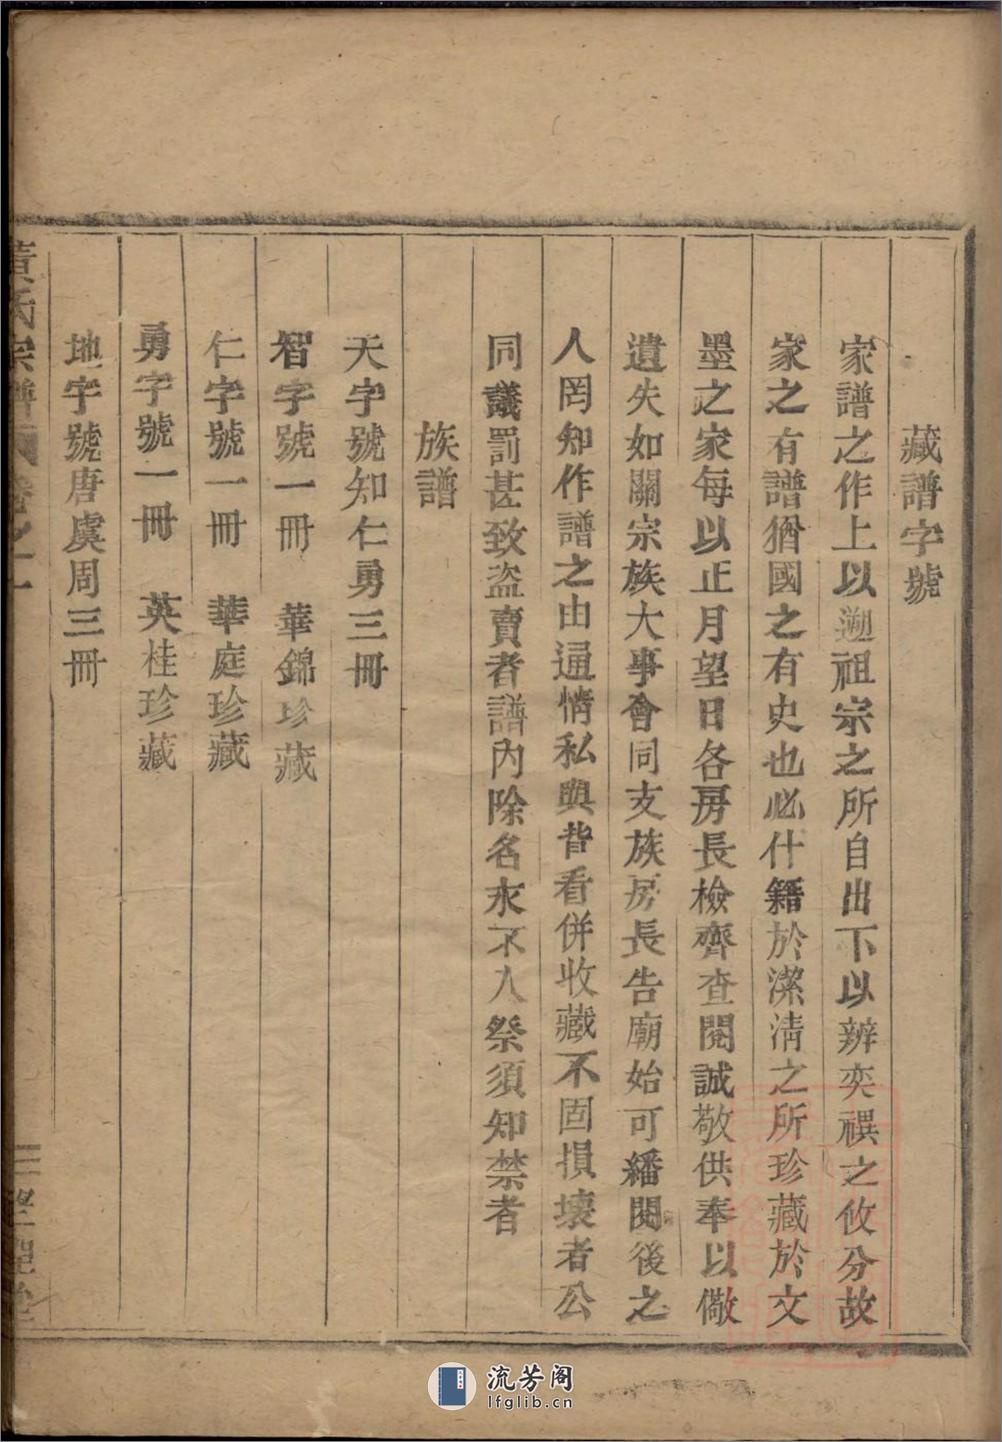 藏譜字號
家譜之作上以遡祖宗之所自出下以辨奕禩之攸分故
家之有譜猶國之有史也必什籍於潔清之所珍藏於文
墨之家每以正月望日各房長檢齊查閱誠敬供奉以儆
遺失如關宗族大事會同支族房長告廟始可繙閱後之
人罔知作譜之由通情私與昔看併收藏不固損壞者公
同議罰甚致盗賣者譜內除名永不入祭須知禁者
族譜
天字號知仁勇三冊
智字號一冊 華錦珍藏
仁字號一冊 華庭珍藏
勇字號一冊 英桂珍藏
地字號唐虞周三冊
黃氏宗譜 卷之一
流芳阁
lfglib.cn